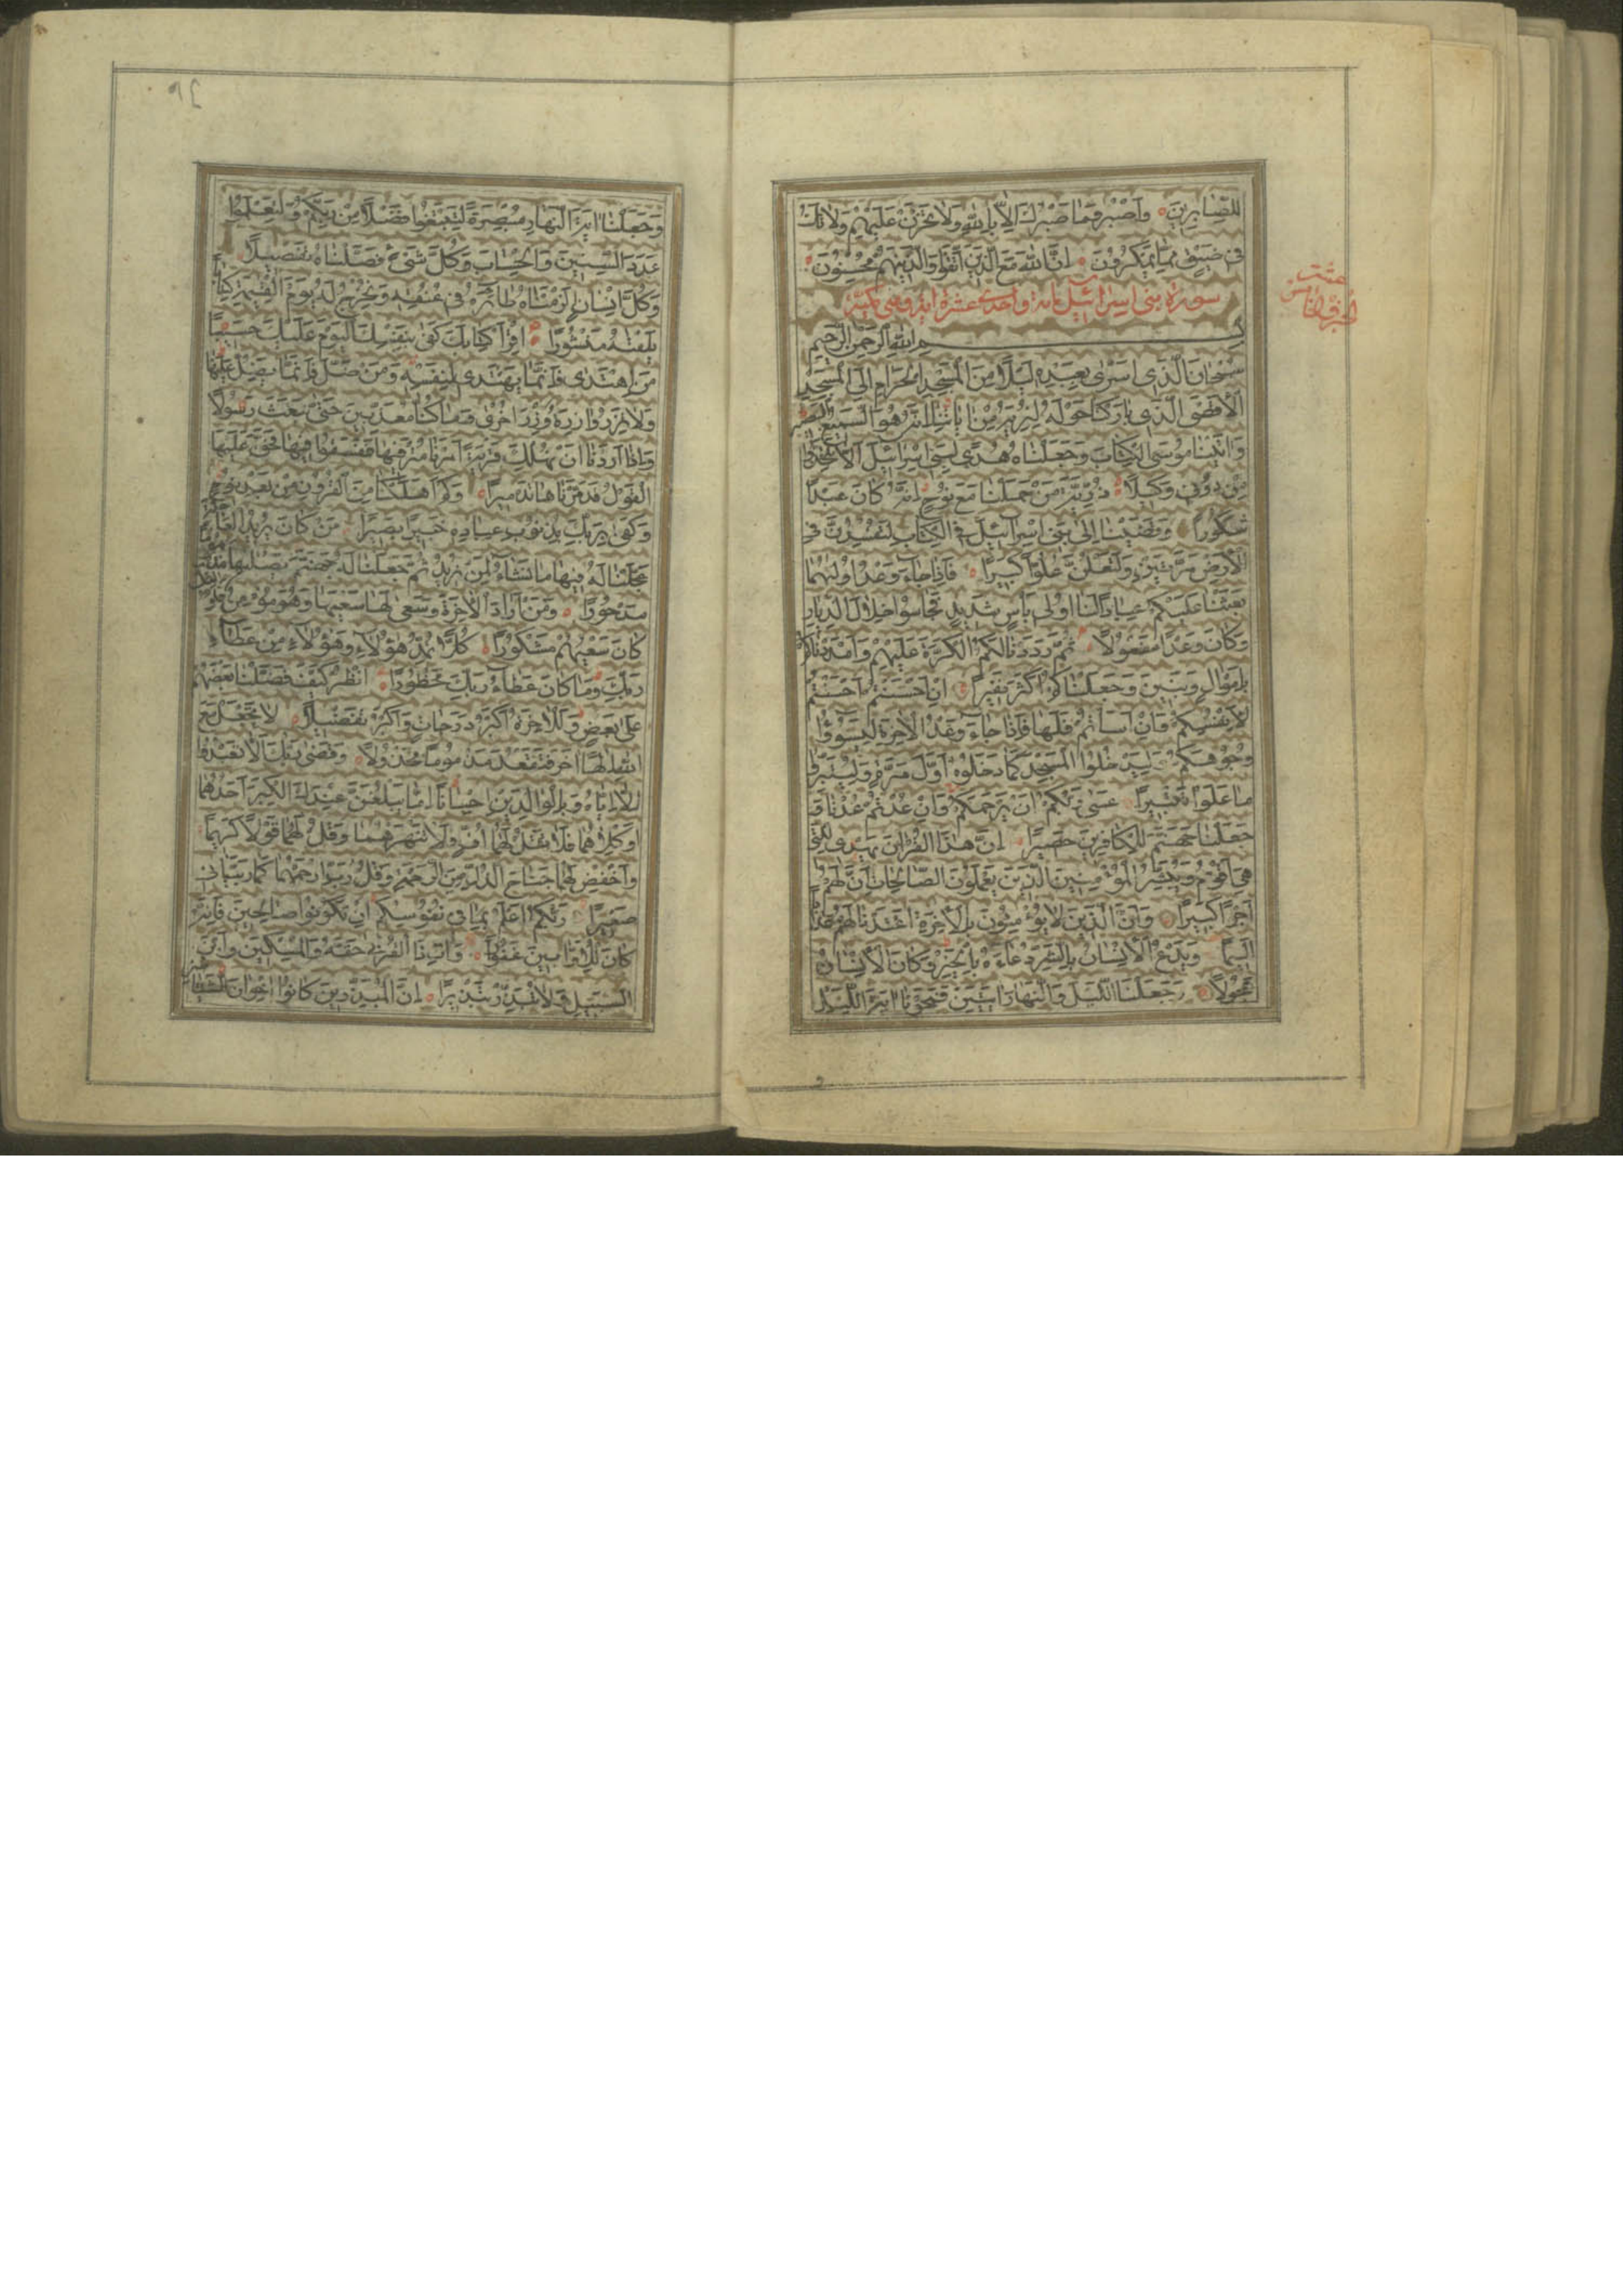 للصابرين واصبر وما صبرك الا بالله ولا تحزن عليهم ولا تك
في ضيق مما يمكرون ان الله مع الذين اتقوا والذين هم محسنون
سورة بني اسرائيل مائة واحدى عشرة اية وهي مكية
بسم الله الرحمن الرحيم
سبحان الذي اسرى بعبده ليلا من المسجد الحرام الى المسجد
الاقصى الذي باركنا حوله لنريه من اياتنا انه هو السميع البصير
واتينا موسى الكتاب وجعلناه هدى لبني اسرائيل الا تتخذوا
من دوني وكيلا ذرية من حملنا مع نوح انه كان عبدا
شكورا وقضينا الى بني اسرائيل في الكتاب لتفسدن في
الارض مرتين ولتعلن علوا كبيرا فاذا جاء وعد اوليهما
بعثنا عليكم عبادا لنا اولي باس شديد فجاسوا خلال الديار
وكان وعدا مفعولا ثم رددنا لكم الكرة عليهم وامددناكم
باموال وبنين وجعلناكم اكثر نفيرا ان احسنتم احسنتم
لانفسكم وان اساتم فلها فاذا جاء وعد الاخرة ليسوؤا
وجوهكم وليدخلوا المسجد كما دخلوه اول مرة وليتبروا
ما علوا تتبيرا عسى ربكم ان يرحمكم وان عدتم عدنا و
جعلنا جهنم للكافرين حصيرا ان هذا القران يهدي للتي
هي اقوم ويبشر المؤمنين الذين يعملون الصالحات ان لهم
اجرا كبيرا وان الذين لا يؤمنون بالاخرة اعتدنا لهم عذابا
اليما ويدع الانسان بالشر دعاءه بالخير وكان الانسان
عجولا وجعلنا الليل والنهار ايتين فمحونا اية الليل
وجعلنا اية النهار مبصرة لتبتغوا فضلا من ربكم ولتعلموا
عدد السنين والحساب وكل شيء فصلناه تفصيلا
وكل انسان الزمناه طائره في عنقه ونخرج له يوم القيمة كتابا
يلقيه منشورا اقرا كتابك كفى بنفسك اليوم عليك حسيبا
من اهتدى فانما يهتدي لنفسه ومن ضل فانما يضل عليها
ولا تزر وازرة وزر اخرى وما كنا معذبين حتى نبعث رسولا
واذا اردنا ان نهلك قرية امرنا مترفيها ففسقوا فيها فحق عليها
القول فدمرناها تدميرا وكم اهلكنا من القرون من بعد نوح
وكفى بربك بذنوب عباده خبيرا بصيرا من كان يريد العاجلة
عجلنا له فيها ما نشاء لمن نريد ثم جعلنا له جهنم يصليها مذموما
مدحورا ومن اراد الاخرة وسعى لها سعيها وهو مؤمن فاولئك
كان سعيهم مشكورا كلا نمد هؤلاء وهؤلاء من عطاء
ربك وما كان عطاء ربك محظورا انظر كيف فضلنا بعضهم
على بعض وللاخرة اكبر درجات واكبر تفضيلا لا تجعل مع
الله الها اخر فتقعد مذموما مخذولا وقضى ربك الا تعبدوا
الا اياه وبالوالدين احسانا اما يبلغن عندك الكبر احدهما
او كلاهما فلا تقل لهما اف ولا تنهرهما وقل لهما قولا كريما
واخفض لهما جناح الذل من الرحمة وقل رب ارحمهما كما ربياني
صغيرا ربكم اعلم بما في نفوسكم ان تكونوا صالحين فانه
كان للاوابين غفورا وات ذا القربى حقه والمسكين وابن
السبيل ولا تبذر تبذيرا ان المبذرين كانوا اخوان الشياطين